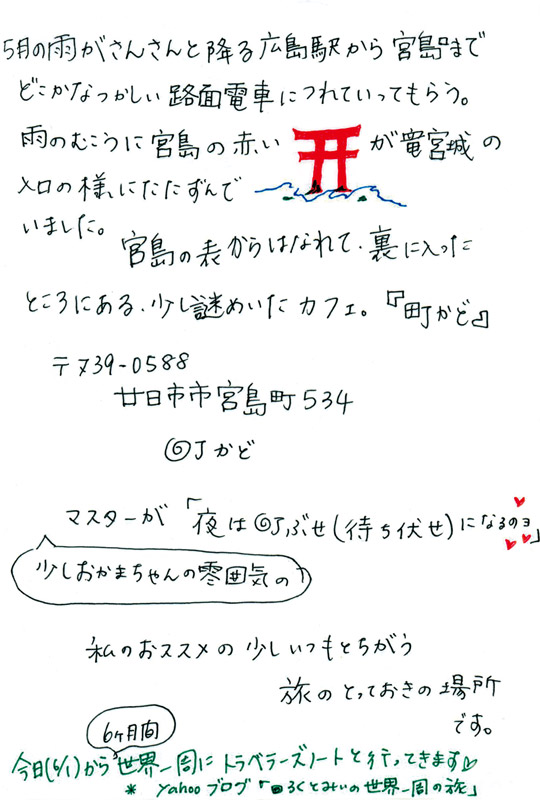 5月の雨がさんさんと降る広島駅から宮島まで
どこかなつかしい路面電車につれていってもらう。
雨のむこうに宮島の赤い が竜宮城の
入口の様にたたずんで
いました。
宮島の表からはなれて、裏に入った
ところにある、少し謎めいたカフェ。『町かど』
〒739-0588
廿日市市宮島町534
町かど
マスターが「夜は町ぶせ(待ち伏せ)になるのョ」
少しおかまちゃんの雰囲気の
私のおススメの少しいつもとちがう
旅のとっておきの場所
です。
6ヶ月間
今日(6/1)から世界一周にトラベラーズノートと行ってきます
* Yahooブログ「ろくとみいの世界一周の旅」